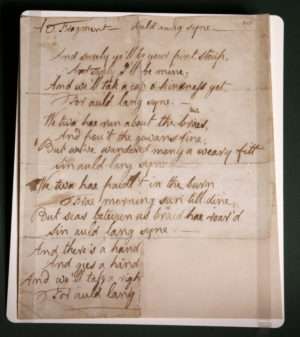 Fragment — Auld lang syne —
And surely ye'll be your pint stoup,
And surely I'll be mine;
And we'll tak a cup o' kindness yet
For auld lang syne. —
We twa hae run about the braes,
And pou't the gowans fine,
But we've wander'd mony a weary fitt
sin auld lang syne —
We twa hae paidl't in the burn
Frae morning sun till dine,
But seas between us braid hae roar'd
sin auld lang syne —
And there's a hand
And gies a hand
And we'll tak a right
For auld lang